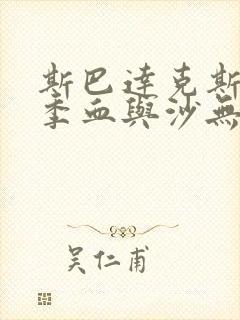 斯巴達克斯
季血與沙無
吳仁甫